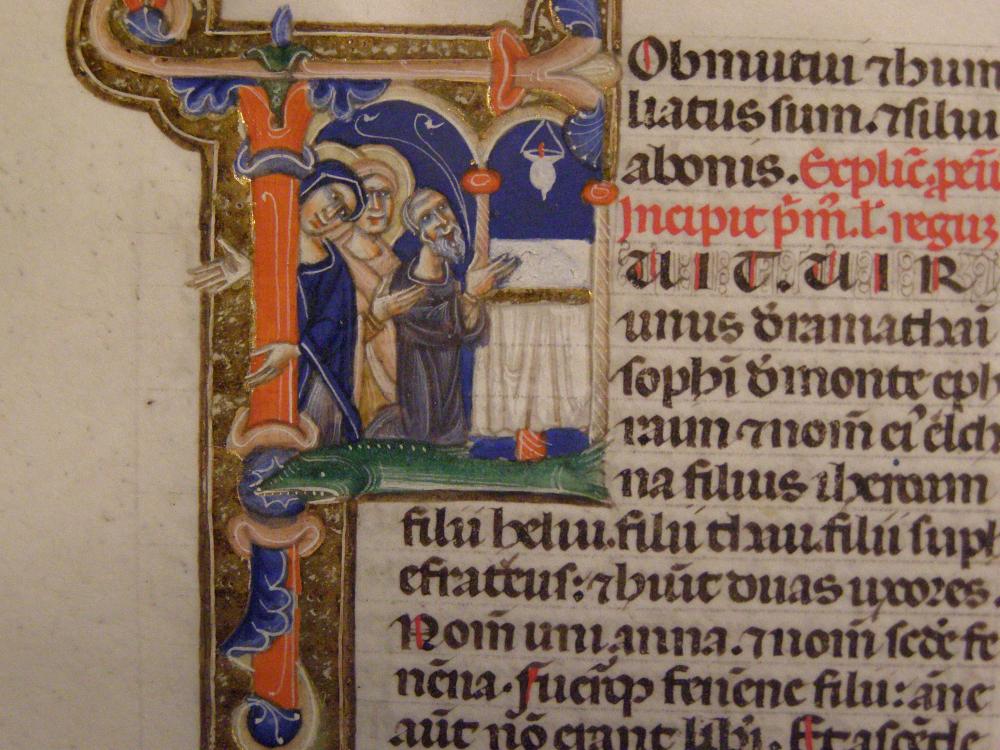 Obmutui ⁊ hum
liatus sum. ⁊ silui
a bonis. Explic̄ p̱em̄
Incipit p̄m̄. l'. reguz
UIT. UIR
unus d̄ ramathai
sophī d̄ monte eph
raim ⁊ nom̄ ei' elch
na filius iheroam
filii heliu. filii thau. filii suph
efrateus: ⁊ huit duas uxores.
Nom̄ uni anna. ⁊ nom̄ sed̄e fe
nēna. fenēne filii: āne
aūt nō erant libī. Et ascēde